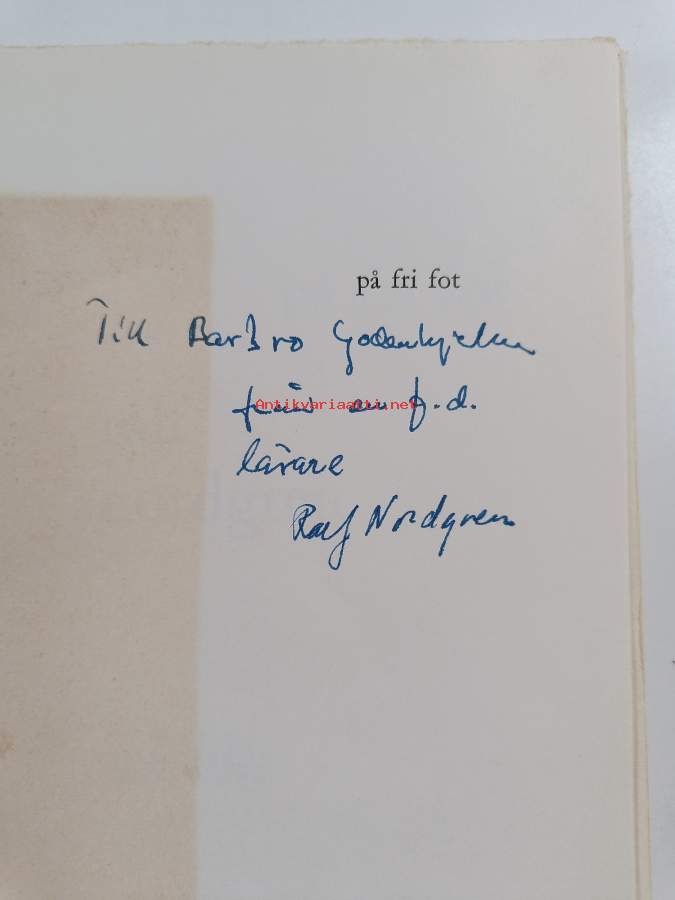 på fri fot
Till Barbro Godenhjelm
från en f.d.
Antikvariaatti.net
lärare
Ralf Nordgren